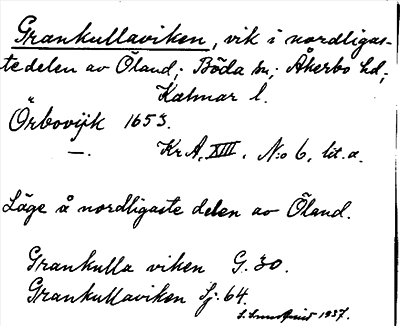 Grankullaviken, vik i nordligas-
te delen av Öland; Böda sn; Åkerbo hd;
Kalmar l.
Örbovijk 1653.
—. Kr A, XIII, N:o 6, lit. a.
Läge å nordligaste delen av Öland.
Grankulla viken G. 30.
Grankullaviken Sj. 64.
1937.